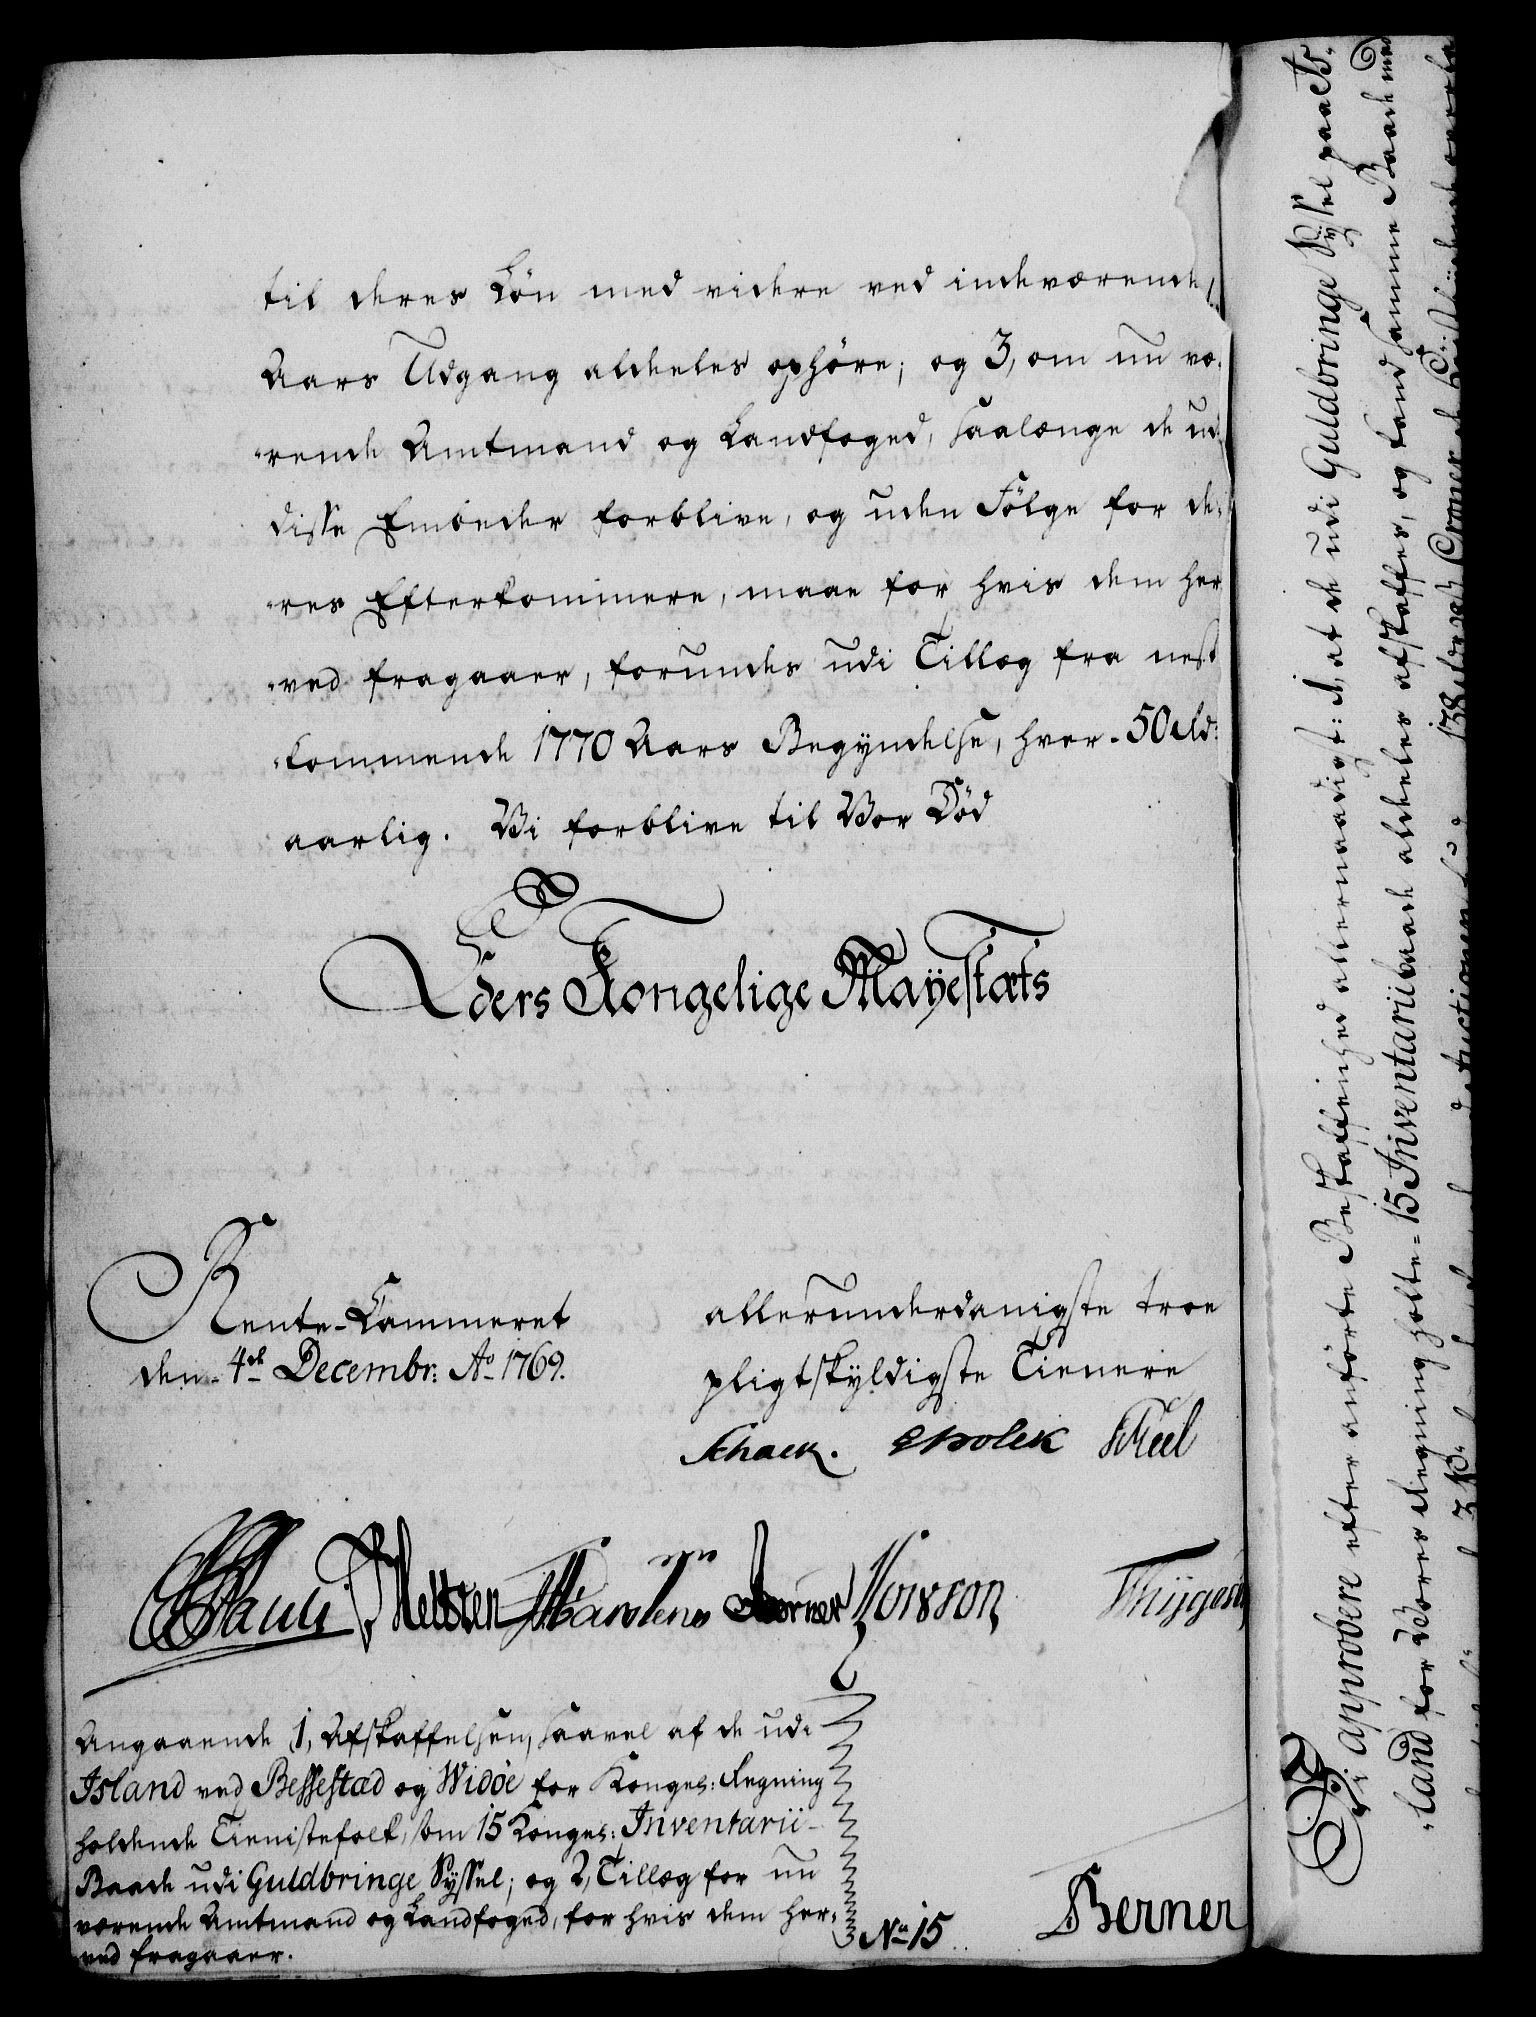 til deres Løn med videre ved indeværende
Aars Udgang aldeles ophöre; og 3, om nu væ-
-rende Amtmand og Landfoged, saalænge de udi
disse Embeder forblive, og uden Fölge for de-
-res Efterkommere, maae for hvis dem her
-ved fragaaer, forundes udi Tillæg fra nest
-kommende 1770 Aars Begyndelse, hver - 50 Rd:
aarlig. Vi forblive til Vor Död
Eders Kongelige Mayestæts
Rente-Cammeret
den 4de Decembr: Ao 1769.
allerunderdanigste troe
pligtskyldigste Tienere
Schack. Juel
Pauli Meltzen Berner Thygesen
Angaaende 1, Afskaffelsen, saavel af de udi
Island ved Bessestad og Widöe for Konges: Regning
holdende Tienistefolk, som 15 Konges: Inventarii-
Baade udi Guldbringe Syssel; og 2, Tillæg for nu
værende Amtmand og Landfoged, for hvis dem her-
-ved fragaaer.
No 15
Berner
Vi approbere efter anförte Beskaffenhed allernaadigst: 1, at de udi Guldbringe Syssel paa Is-
-land for Vores Regning holte = 15 Inventarii baade aldeles afskaffes, og samme Baade med